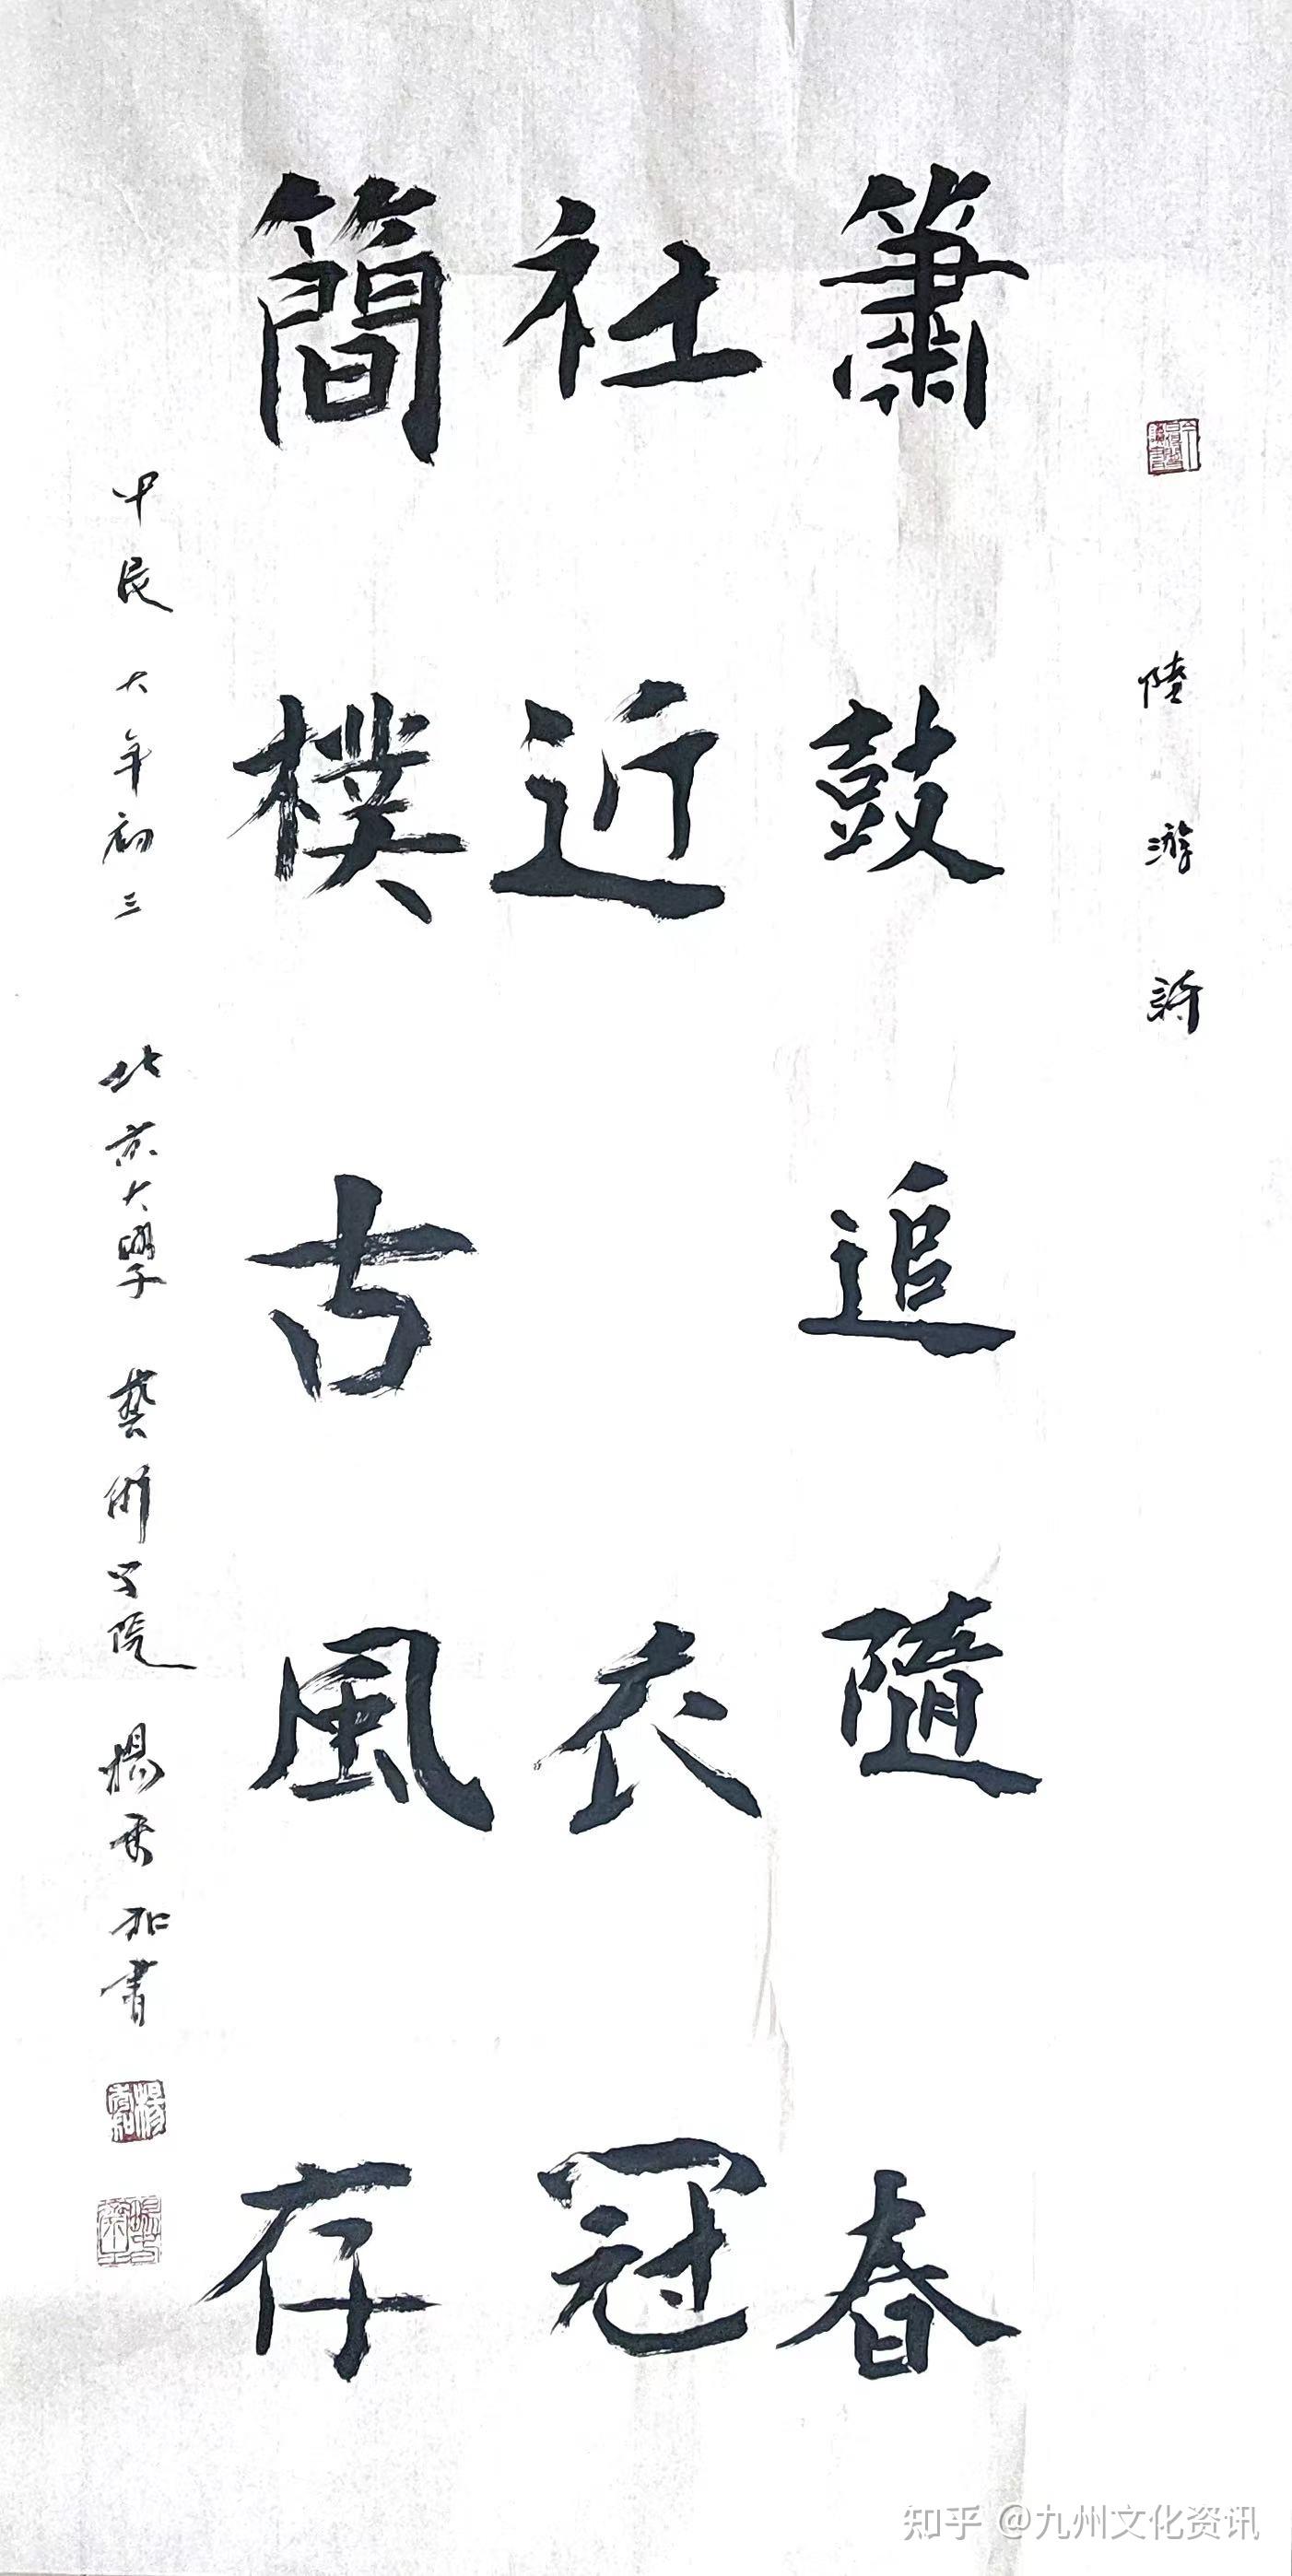 陸游詩
簫鼓追隨春
社近衣冠
簡樸古風存
甲辰大年初三 北京大學藝術學院 楊
書
知乎 @九州文化资讯